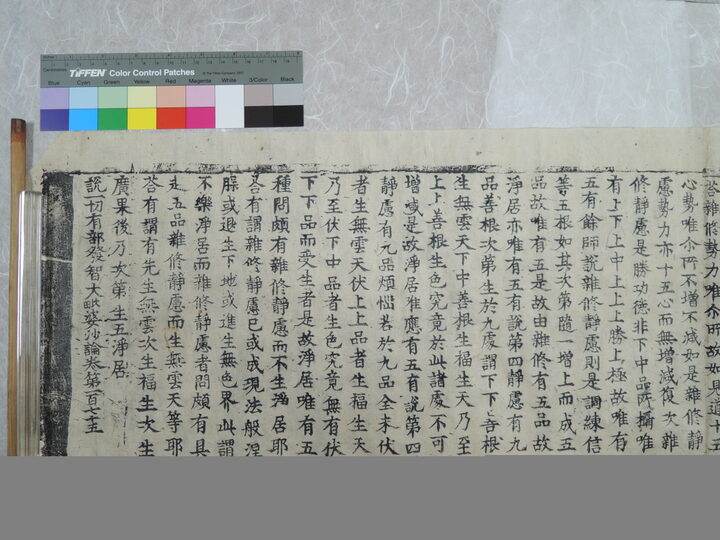 TIFFEN Color Control Patches
Blue Cyan Green Yellow Red Magenta White 3/Color Black
答雜修勢力唯亦明故如見道十五
心勢唯尒所不增不減如是雜修靜
慮勢力亦十五心而無增減復次雜
修靜慮是勝功德非下中品所攝唯
有上下上中上上上勝上極故唯有
五有餘師說雜修靜慮則是調練信
等五根如其次第隨一增上而成五
品故唯有五是故由雜修有五品故
淨居亦唯有五有說第四靜慮有九
品善根次第生於九處謂下下善根
生無雲天下中善根生福生天乃至
上上善根生色究竟於此諸處不可
增減是故淨居唯應有五有說第四
靜慮有九品煩惱若於九品全未伏
者生無雲天伏上上品者生福生天
乃至伏下中品者生色究竟無有伏
下下品而受生者是故淨居唯有五
種問頗有雜修靜慮而不生淨居耶
荅有謂雜修靜慮已或成現法般涅
或退生下地或進生無色界此謂
不樂淨居而雜修靜慮者問頗有具
足五品雜修靜慮而生無雲天等耶
荅有謂有先生無雲次生福生次生
廣果後乃次第生五淨居
說一切有部發智大毗婆沙論卷第一百七十五